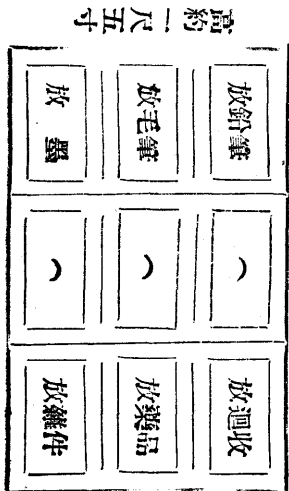 高約一尺五寸
放鉛筆
放毛筆
放墨
放迴收
放藥品
放雜件